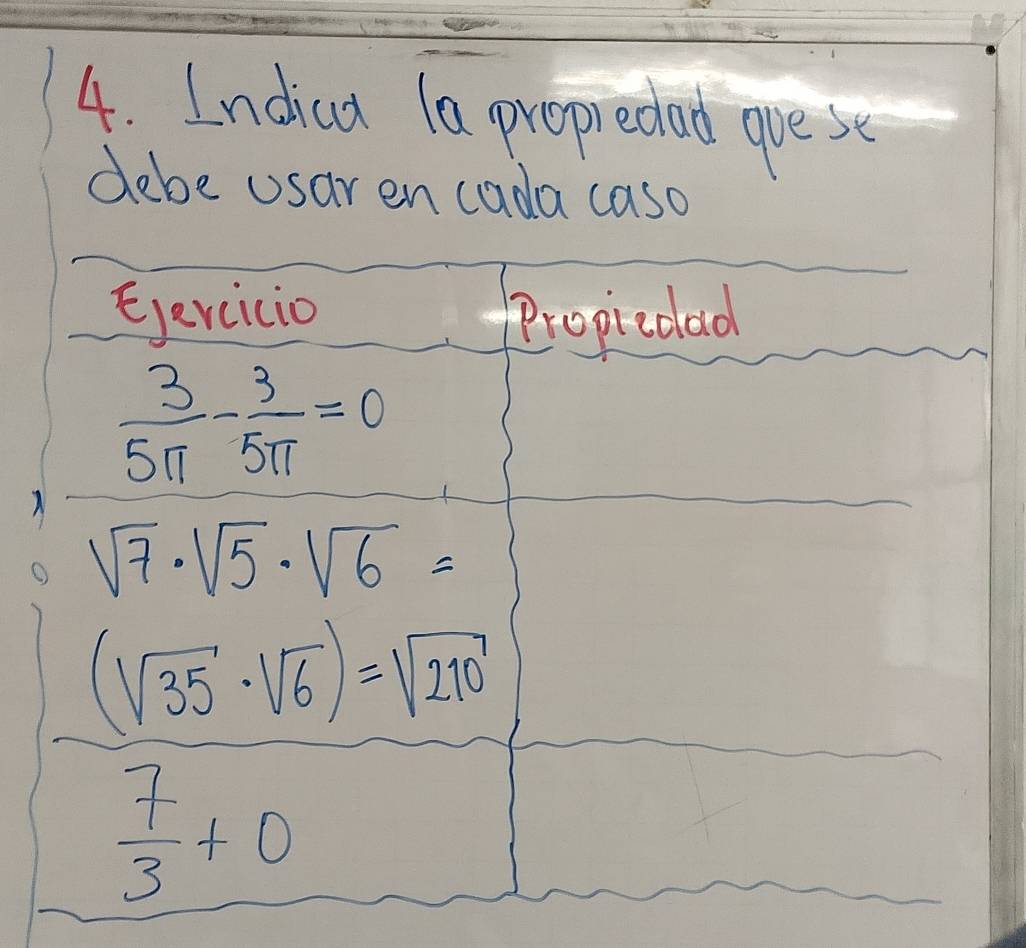 4. Indica la propiedad que se
debe usar en cada caso
Ejercicio Propiedad
3/5π - 3/5π = 0
√7 · √5 · √6 =
(√35 · √6) = √210
7/3 + 0